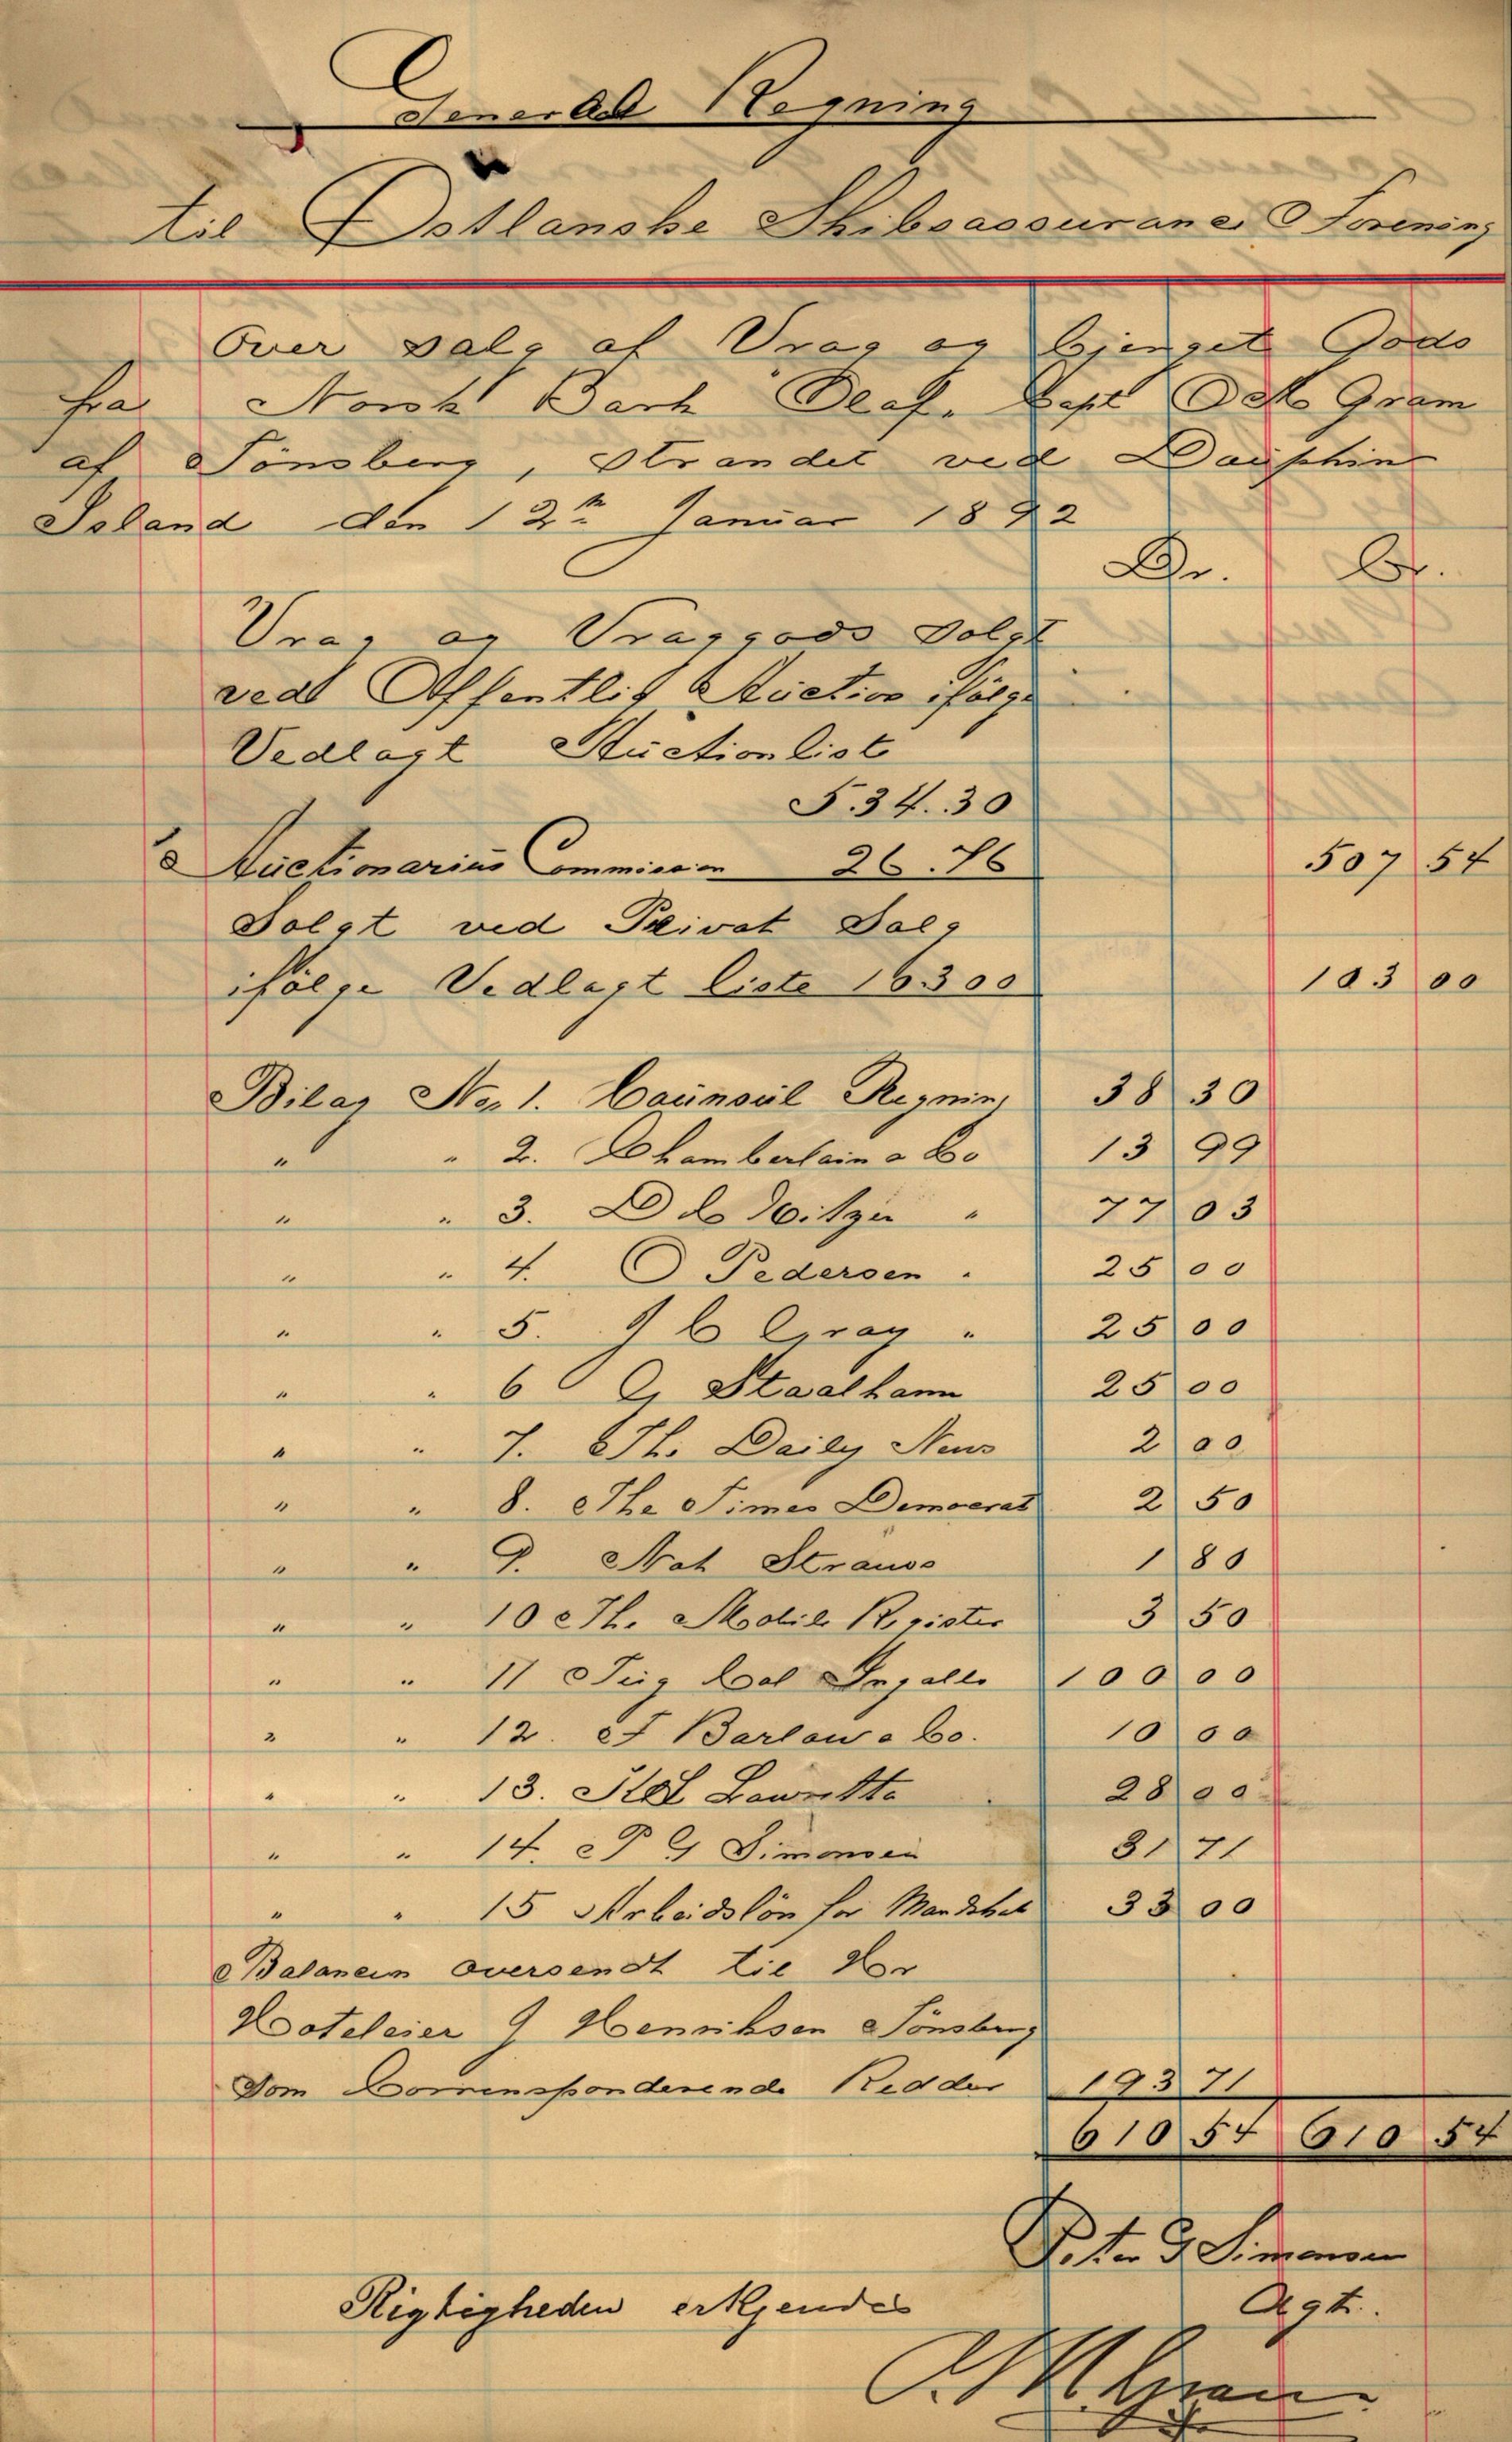 General Regning
til Östlanske Skibsassurance Forening
Over Salg af Vrag og bjerget Gods
fra Norsk Bark Olaf. Capt O M Gram
af Tönsberg, Strandet ved Dauphin
Island den 12te Januar 1892
Dr. Cr.
Vrag og Vraggods Solgt
ved Offentlig Auction ifölge
Vedlagt Auctionliste
534.30
Auctionarius Commission 26.76 507 54
Solgt ved Privat Salg
ifölge Vedlagt liste 103 00 103 00
Bilag No. 1. Counsul Regning 38 30
" " 2. Chamberlain & Co 13 99
" " 3. " 77 03
" " 4. O Pedersen " 25 00
" " 5. Gray " 25 00
" " 6 G Staalhann 25 00
" " 7. The Daily News 2 00
" " 8. The Times Democrat 2 50
" " 9. Nat Strauss 1 80
" " 10 The Mobile Register 3 50
" " 11 Tug Col Ingalls 100 00
" " 12. Barlow & Co. 10 00
" " 13. 28 00
" " 14. P G Simonsen 31 71
" " 15 Arbeidslön for Mandskab 33 00
Balancen oversendt til Hr
Hoteleier G Henriksen Tönsberg
Som Corrensponderende Redder 193 71
610 54 610 54
Peter G. Simonsen
Rigtigheden erkjendes Agt.
O. M. Gram